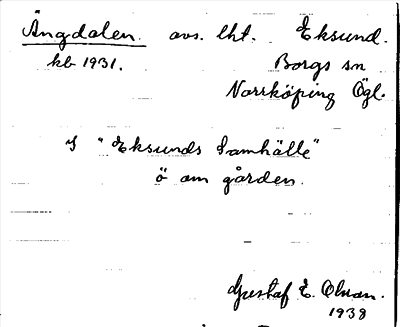 Ängdalen. avs. lht. Eksund.
kb 1931. Borgs sn
Norrköping Ögl.
I "Eksunds Samhälle"
ö om gården.
Gustaf E. Olsson.
1938